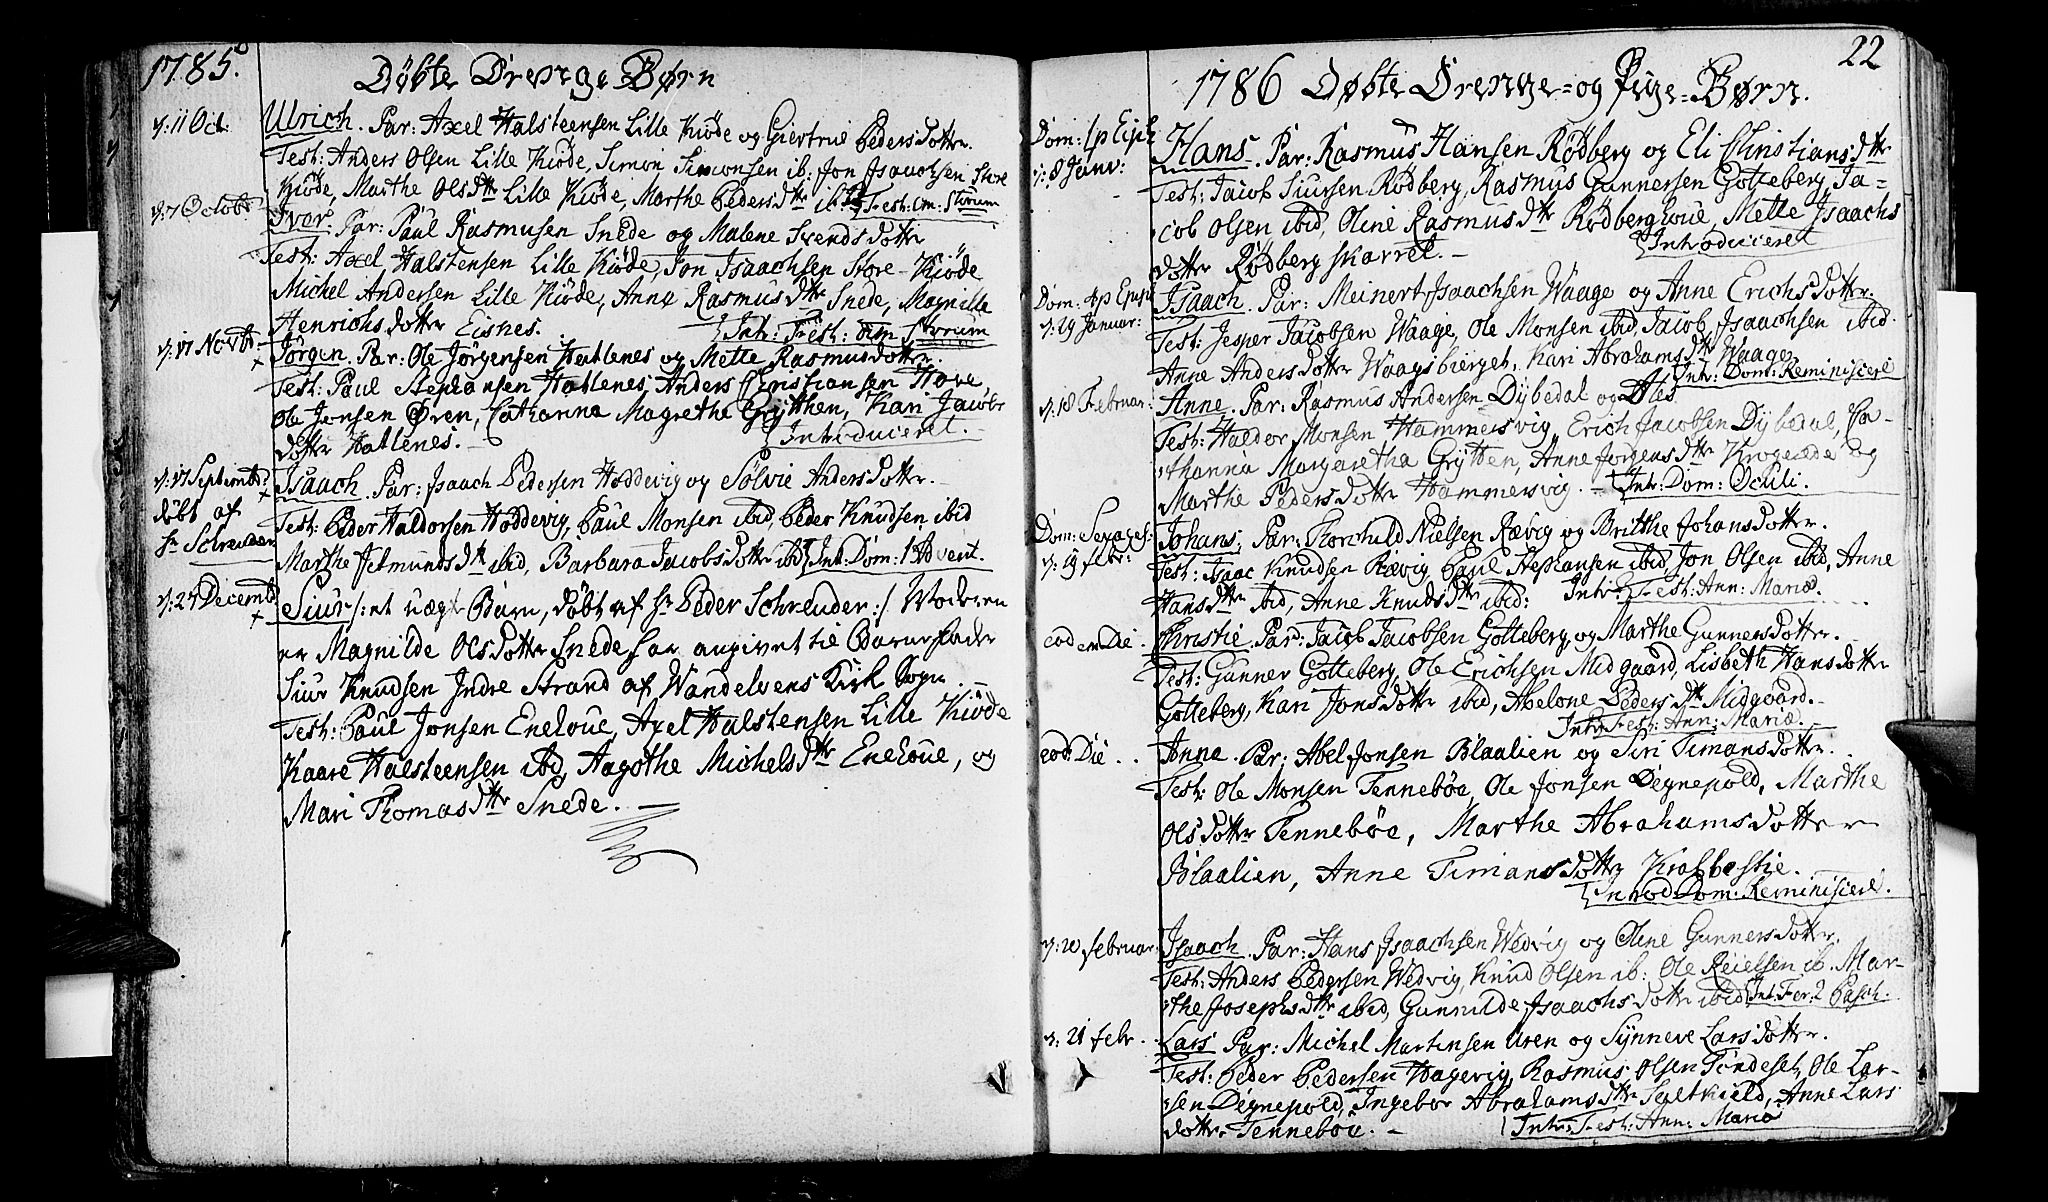 1785.
Døbte Drenge Børn
d: 11 Oct: Ulrich. Par: Axel Halsteensen Lille Kiøde og Giertrue Pedersdotter.
Test: Anders Olsen Lille Kiøde, Simon Simonsen ib: Jon Isaachsen Store
Kiøde, Marthe Olsdttr Lille Kiøde, Marthe Pedersdttr ibid Test: Om: Storum
d: 7 Octobr Iver. Par: Paul Rasmusen Snede og Malene Svendsdotter
Test: Axel Halstensen Lille Kiøde, Jon Isaachsen Store-Kiøde
Michel Andersen Lille Kiøde, Anna Rasmusdttr Snede, Magnille
Henrichsdotter Eisnes. Int: Fest: om: Storum
d: 17 Novbr Jørgen. Par: Ole Jørgensen Hatlenes og Mette Rasmusdotter.
Test: Paul Stephansen Hatlenes, Anders Christiansen Hove,
Ole Jensen Øren, Catharina Magrethe Grytten, Kari Jacobs
dotter Hatlenes. Introduceret.
d: 17 Septembr Isaach. Par: Isaach Pedersen Hoddevig og Sølvie Andersdotter.
døbt af Test: Peder Haldorsen Hoddevig, Paul Monsen ibid, Peder Knudsen ibid
Hr Schreuder Marthe Jetmundsdttr ibid, Barbara Jacobsdotter ibid Int: Dom: 1 Advent.
d: 24 Decembr Siur /: et uægt Barn, døbt af Hr Peder Schreuder :/ Moderen
er Magnilde Olsdotter Snede har angivet til Barnefader
Siur Knudsen Indre Strand af Wandelvens Kirk Sogn. –
Test: Paul Jonsen Enehoue, Axel Halstensen Lille Kiøde
Kaare Halsteensen ibid, Aagothe Michelsdttr Enehoue, og
Mari Thomasdttr Snede. –
22
1786 Døbte Drenge- og Pige-Børn.
Dom: 1 p Eiph Hans. Par: Rasmus Hansen Rødberg og Eli Christiansdttr
d: 8 Janv: Test: Jacob Siursen Rødberg, Rasmus Gunnersen Gotteberg, Ja=
cob Olsen ibid, Oline Rasmusdttr Rødberghoue, Mette Isaachs
dotter Rødbergskarret. – Introduceret
Dom: 4 p Epiph Isaach. Par: Meinert Isaachsen Waage og Anne Erichsdotter.
d: 29 Januar: Test: Jesper Jacobsen Waage, Ole Monsen ibid, Jacob Isaachsen ibid.
Anne Andersdotter Waagsbierget, Kari Abrahamsdttr Waage
Intr: Dom: Reminiscere
d: 18 Februar: Anne. Par: Rasmus Andersen Dybedal og
Test: Haldor Monsen Hammersvig, Erich Jacobsen Dybedal, Ca-
tharina Margaretha Grytten, Anne Jørgensdttr og
Marthe Pedersdotter Hammersvig. – Intr: Dom: Oculi.
Dom: Sexages: Johans; Par: Nielsen Rævig og Britthe Johansdotter.
d: 19 febr: Test: Isaac Knudsen Rævig, Paul Stephansen ibid, Jon Olsen ibid, Anne
Hansdttr ibid, Anne Knudsdttr ibid: Intr: Fest: Ann: Mariæ.
eodem Die. Christie. Par: Jacob Jacobsen Gotteberg og Marthe Gunnersdotter.
Test: Gunner Gotteberg, Ole Erichsen Midgaard, Lisbeth Hansdotter
Gotteberg, Kari Jonsdotter ibid, Abelone Pedersdttr Midgaard.
Intr: Fest: Ann: Mariæ.
eod: Die . . Anna. Par: Abel Jonsen Blaalien og Siri Timansdotter.
Test: Ole Monsen Tennebøe, Ole Jonsen Degnepold, Marthe
Olsdotter Tennebøe, Marthe Abrahamsdotter
Blaalien, Anne Timansdotter Krabbestie.
Introd Dom: Reminiscere.
d: 20 februar: Isaach. Par: Hans Isaachsen Wedvig og Oline Gunnersdotter.
Test: Anders Pedersen Wedvig, Knud Olsen ib: Ole Reielsen ib. Mar-
the Josephsdttr ibid, Gunnilde Isaachsdotter ibid Int: Fer: 2 Pasch.
d: 21 febr. Lars Par: Michel Martinsen Uren og Synneve Larsdotter.
Test: Peder Pedersen Hagevig, Rasmus Olsen Tøndeset, Ole Lar-
sen Degnepold, Ingebor Abrahamsdttr Saltkield, Anne Lars
dotter Tennebøe. – Intr: Fest: Ann: Mariæ